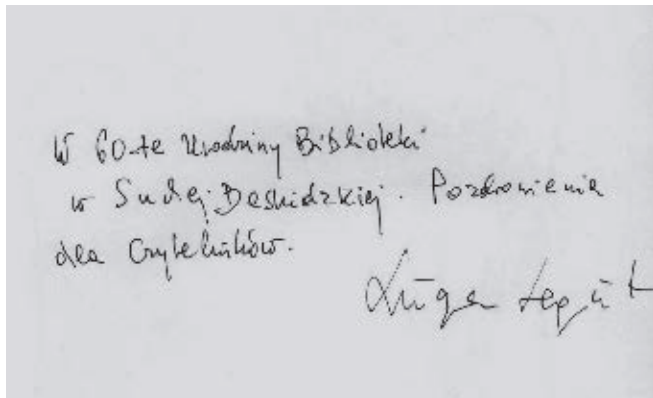 W 60-te Urodziny Biblioteki
w Suchej Beskidzkiej. Pozdrowienia
dla Czytelników.
Kinga Legut